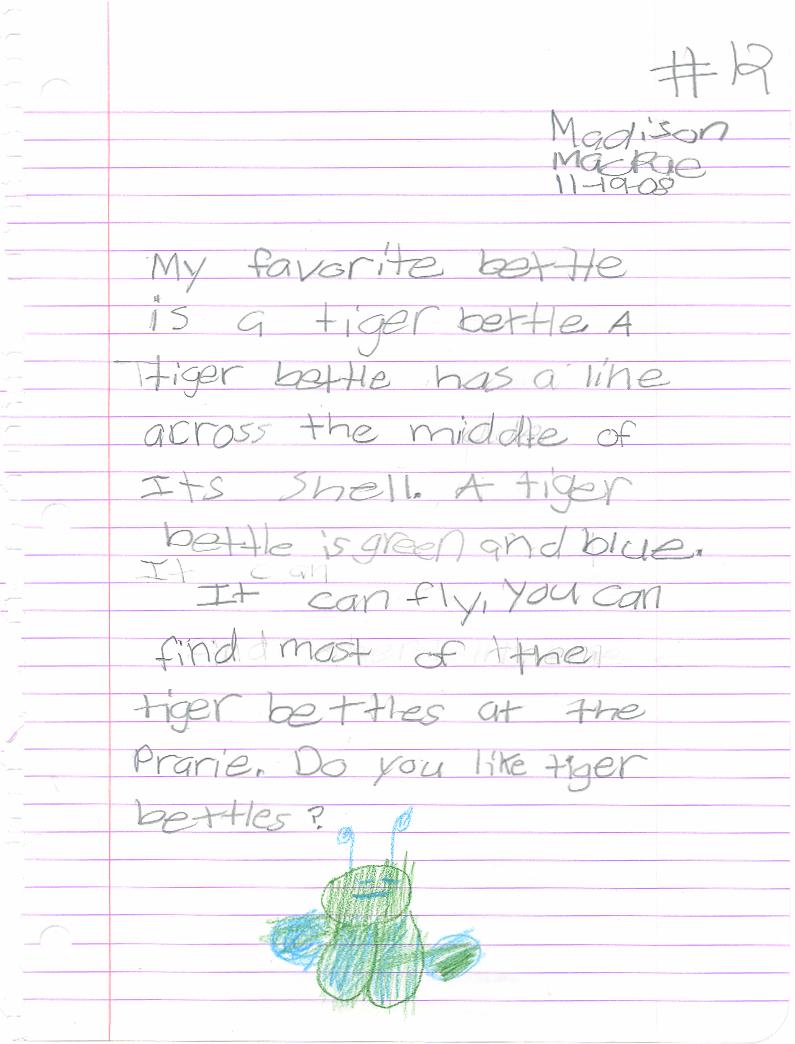 #12
Madison
MacRae
11-19-08
My favorite bettle
is a tiger bettle A
tiger bettle has a line
across the middle of
Its shell. A tiger
bettle is green and blue.
It can
It can fly, you can
find most of the
tiger bettles at the
Prarie. Do you like tiger
bettles?